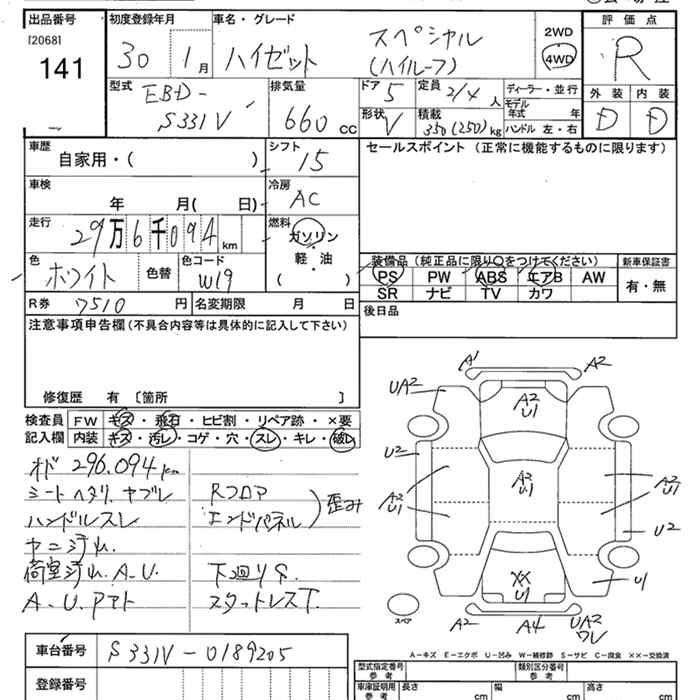 出品番号
[2068]
141
初度登録年月
30 1月
車名・グレード
ハイゼット
スペシャル
(ハイルーフ)
2WD
4WD
評価点
R
外装 内装
D D
型式
EBD-
S331V
排気量
660 cc
ドア 5
定員 2/4 人
形状 V
積載 350(250)kg
ディーラー・並行
モデル年式 年
ハンドル 左・右
車歴
自家用・( )
シフト 15
セールスポイント (正常に機能するものに限ります)
車検
年 月( 日)
冷房 AC
走行
29万6千094km
燃料
ガソリン
・
軽・油
( )
色
ホワイト
色替
色コード
W19
装備品 (純正品に限り○をつけてください)
新車保証書
PS PW ABS エアB AW
有・無
SR ナビ TV カワ
R券 7510円
名変期限 月 日
後日品
注意事項申告欄(不具合内容等は具体的に記入して下さい)
修復歴 有 〔箇所 〕
検査員 FW キズ・飛石・ヒビ割・リペア跡・×要
記入欄 内装 キズ・汚レ・コゲ・穴・スレ・キレ・破レ
オド 296.094km
シートヘタリ.ヤブレ
ハンドルスレ
ヤニ汚れ.
荷室汚れ.A.U.
A.U.アト
Rフロア
エンドパネル
)歪み
下回りS.
スタットレスT.
A1 A2
UA2
A2
U1
U2
A2
U1
A2
U1
A2
U1
U2
XX
U1
U1
スペア
A2 A4 UA2
ワレ
A-キズ E-エクボ U-凹み W-補修跡 S-サビ C-腐食 ××-交換済
車台番号 S331V-0189205
登録番号
型式指定番号
参考
類別区分番号
参考
車庫証明用
参考
長さ cm
幅 cm
高さ cm